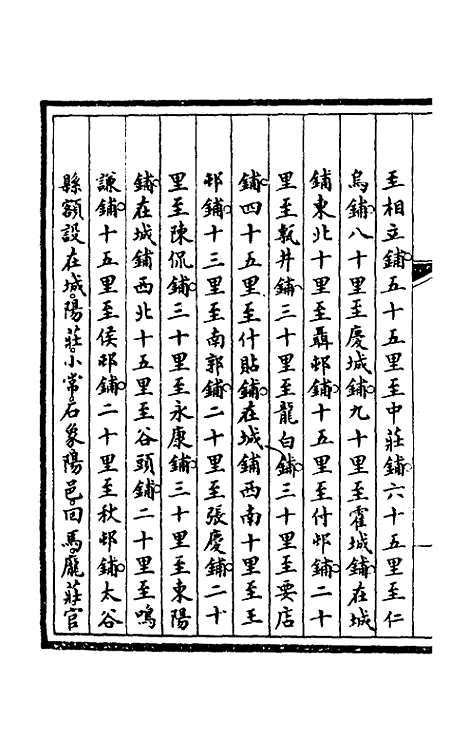 至相立鋪五十五里至中莊鋪六十五里至仁
烏鋪八十里至慶城鋪九十里至霍城鋪在城
鋪東北十里至聶邨鋪十五里至付邨鋪二十
里至瓠井鋪三十里至龍白鋪三十里至要店
鋪四十五里至什貼鋪在城鋪西南十里至王
邨鋪十三里至南郭鋪二十里至張慶鋪二十
里至陳侃鋪三十里至永康鋪三十里至東陽
鋪在城鋪西北十五里至谷頭鋪二十里至鳴
謙鋪十五里至侯邨鋪二十里至秋邨鋪太谷
縣額設在城陽莊小常石象陽邑回馬龐莊官